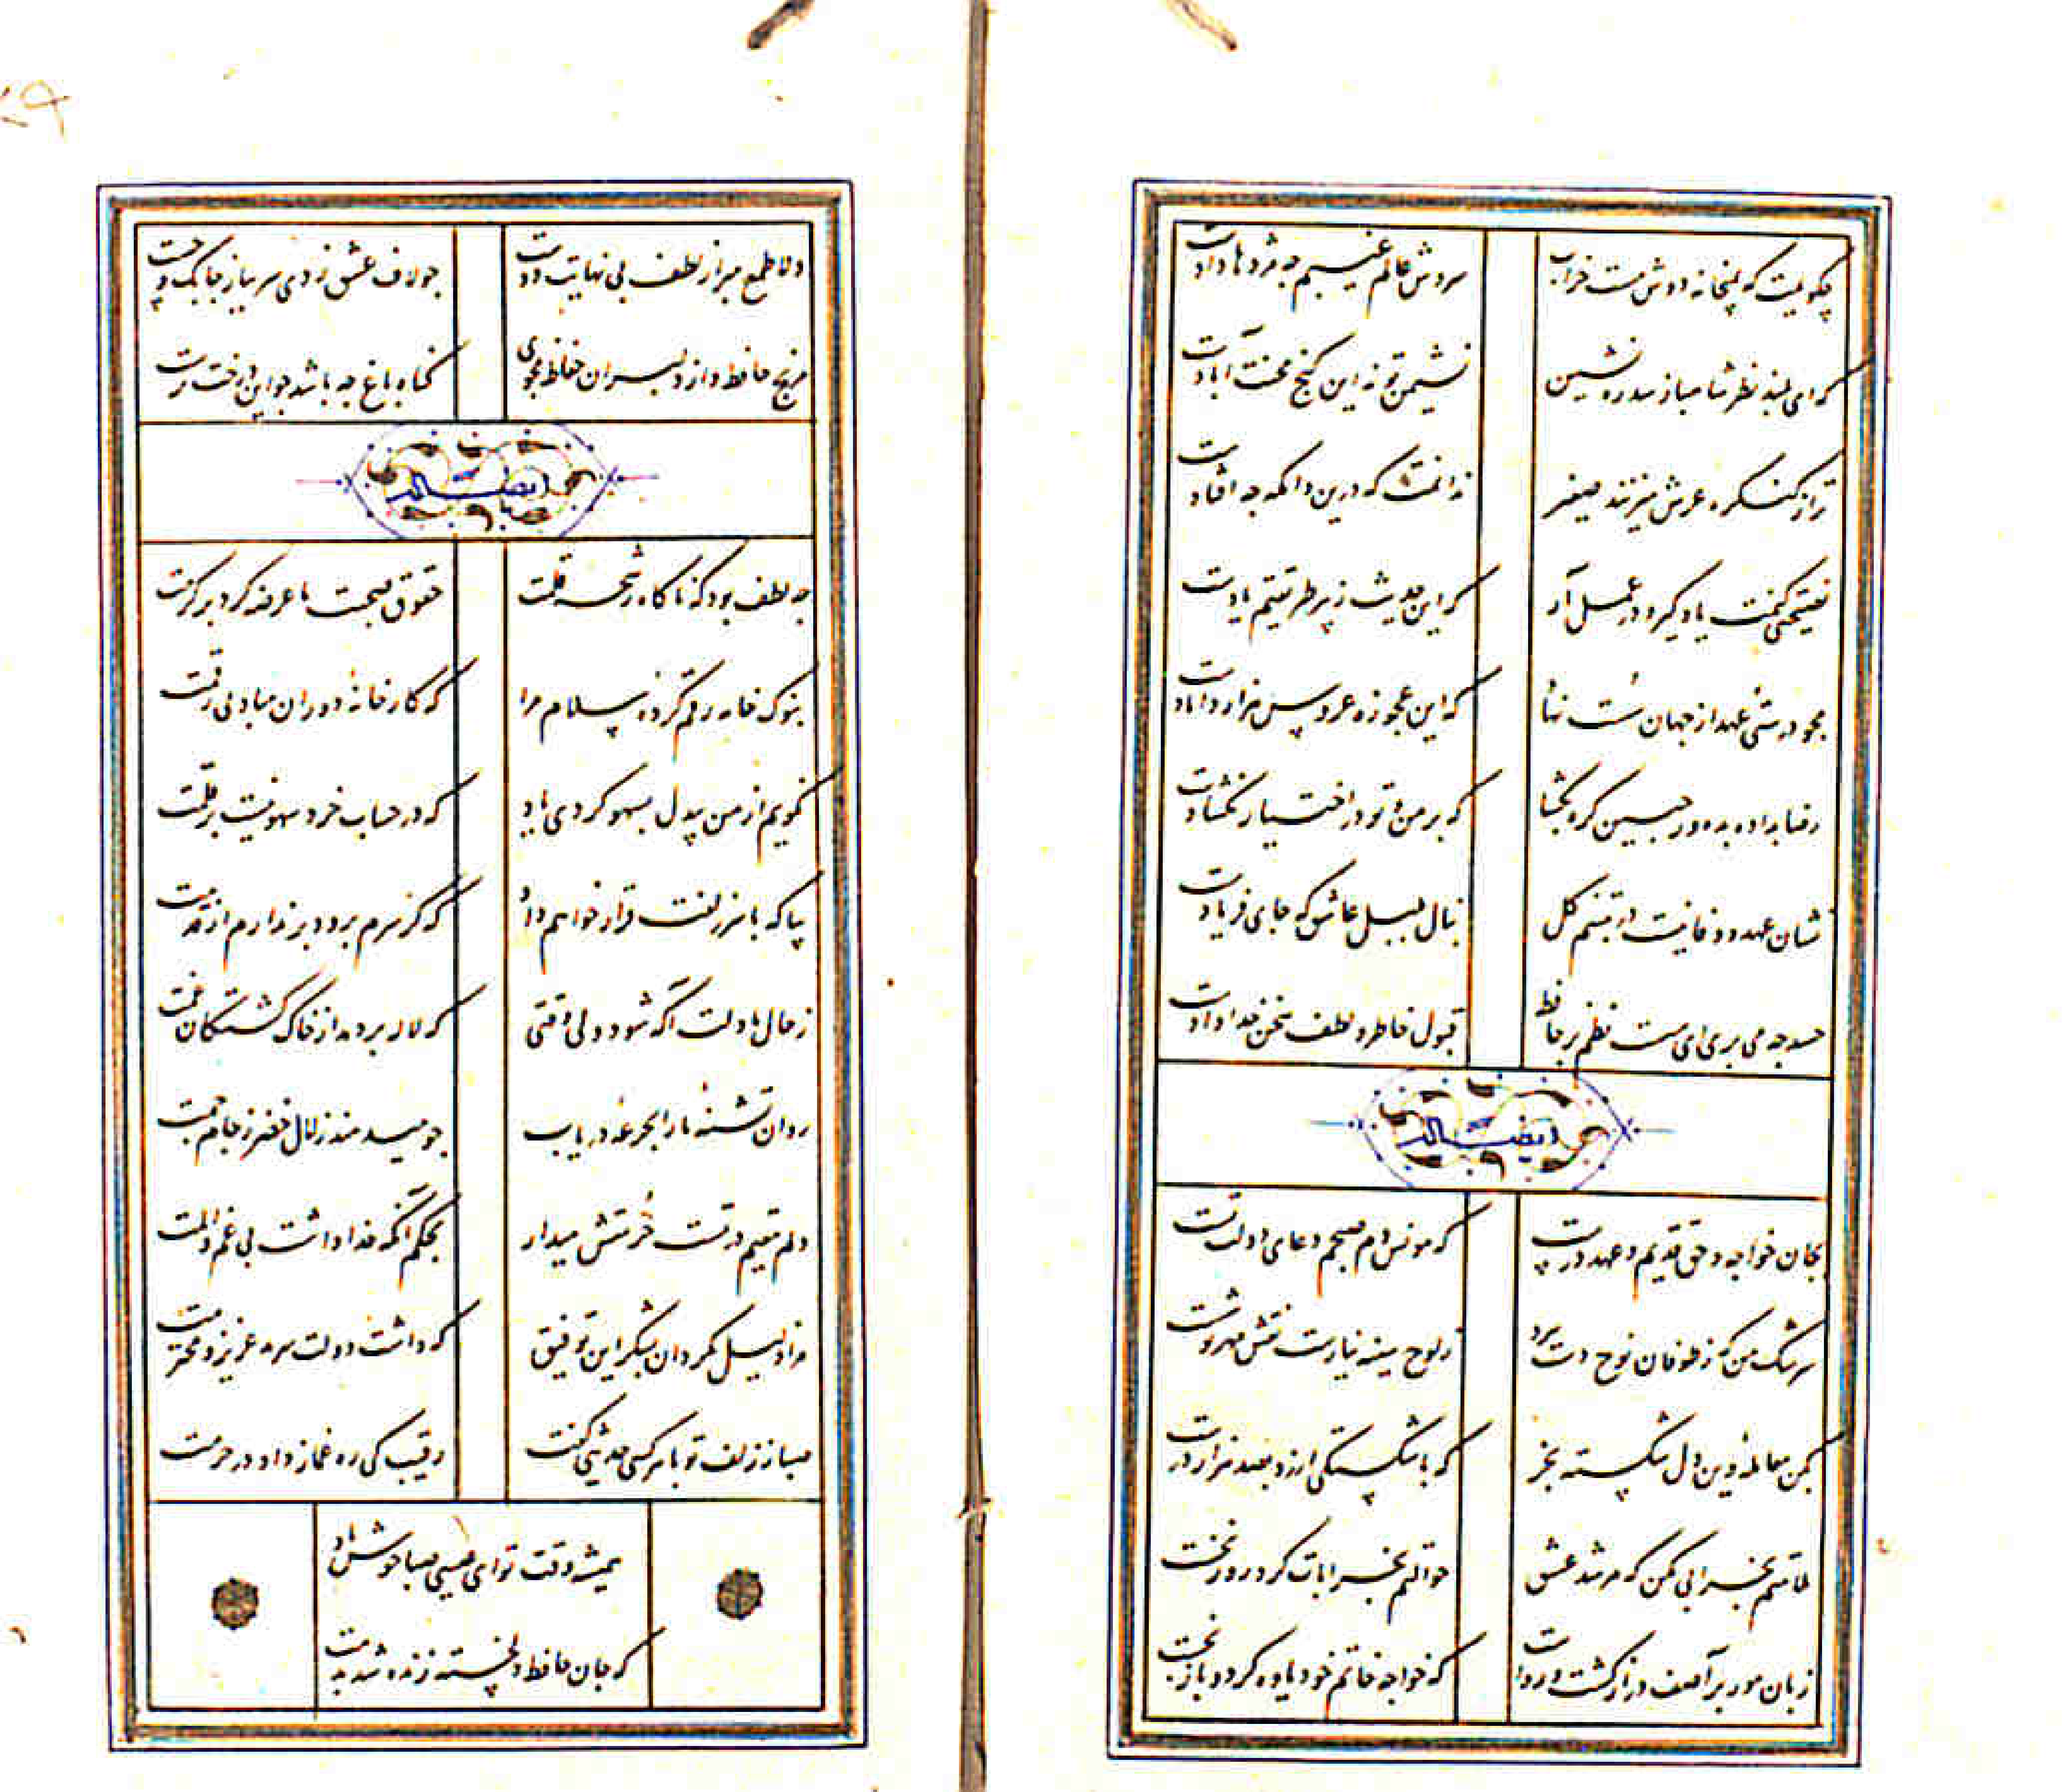 چکویمت که بمیخانه دوش مست خراب
سروش عالم غیبم چه مژدها دادست
کرای بلند نظر شاهباز سدره نشین
نشیمن تو نه این کنج محنت آبادست
ترا ز کنکره عرش میزنند صفیر
ندانمت که درین دامکه چه افتادست
نصیحتی کنمت یاد کیر و در عمل آر
که این حدیث ز پیر طریقتم یادست
مجو درستی عهد از جهان سست نهاد
که این عجوزه عروس هزار دامادست
رضا بداده بده وز جبین کره بکشا
که بر من و تو در اختیار نکشادست
نشان عهد و وفا نیست در تبسم کل
بنال بلبل عاشق که جای فریادست
حسد چه می بری ای سست نظم بر حافظ
قبول خاطر و لطف سخن خدادادست
ایضاً له
بجان خواجه و حق قدیم و عهد درست
که مونس دم صبحم دعای دولت تست
سرشک من که ز طوفان نوح دست برد
ز لوح سینه نیارست نقش مهر تو شست
بکن معامله وین دل شکسته بخر
که با شکستکی ارزد بصد هزار درست
ملامتم بخرابی مکن که مرشد عشق
حوالتم بخرابات کرد روز نخست
زبان مور بر آصف دراز کشت و رواست
که خواجه خاتم خود یاوه کرد و باز نجست
دلا طمع مبر از لطف بی نهایت دوست
چو لاف عشق زدی سر بباز چابک و چست
مرنج حافظ و از دلبران حفاظ مجوی
کناه باغ چه باشد چو این درخت نرست
ایضاً له
چه لطف بود که ناکاه رشحه قلمت
حقوق صحبت ما عرضه کرد بر کرمت
بنوک خامه رقم کردهٔ سلام مرا
که کارخانه دوران مباد بی رقمت
نکویم از من بیدل بسهو کردی یاد
که در حساب خرد سهو نیست بر قلمت
بیا که با سر زلفت قرار خواهم داد
که کر سرم برود بر ندارم از قدمت
ز حال ما دلت آکه شود ولی وقتی
که لاله بر دمد از خاک کشتکان غمت
روان تشنهٔ ما را بجرعهٔ دریاب
چو میدهند زلال خضر ز جام جمت
دلم مقیم در تست حرمتش میدار
بحکم آنکه خدا داشت بی غم و المت
مرا ذلیل مکردان بشکر این توفیق
که داشت دولت سرمد عزیز و محترمت
صبا ز زلف تو با هر کسی حدیثی کفت
رقیب کی ره غماز داد در حرمت
همیشه وقت تو ای عیسی صبا خوش باد
که جان حافظ دلخسته زنده شد بدمت